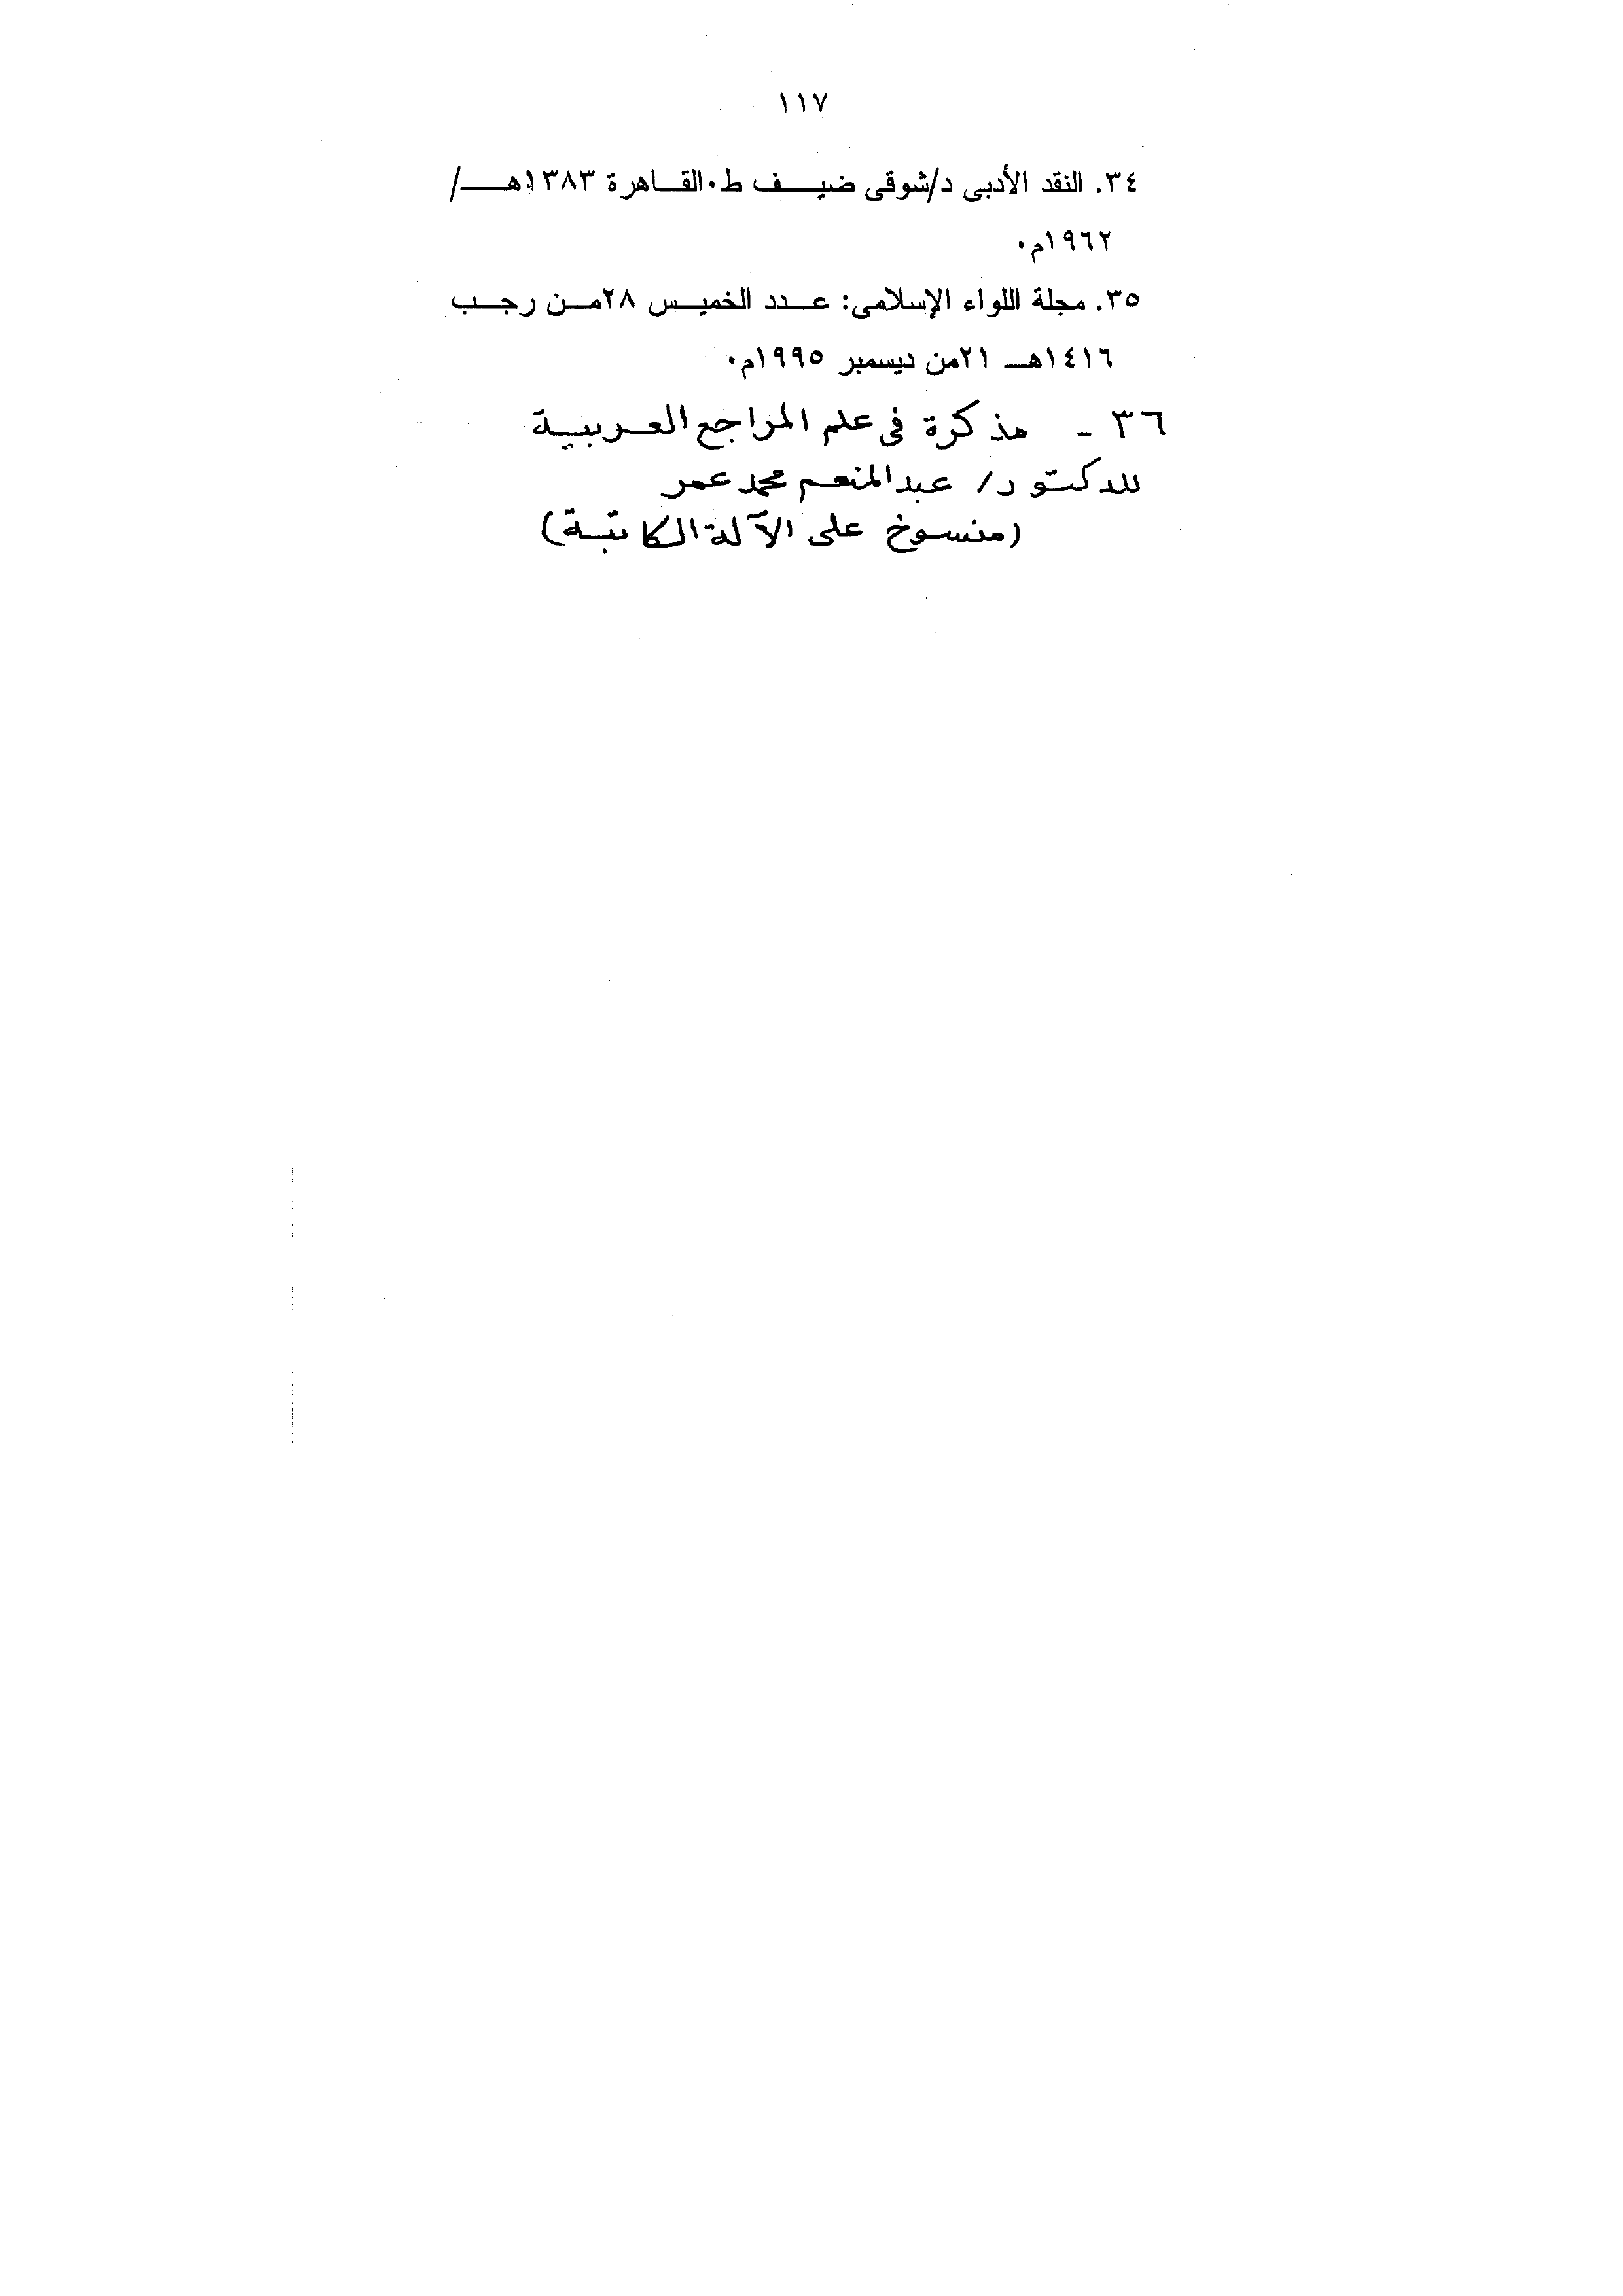 ١١٧
٣٤. النقد الأدبى د/شوقى ضيف ط٠القاهرة ١٣٨٣هـ/
١٩٦٢م٠
٣٥. مجلة اللواء الإسلامى: عدد الخميس ٢٨من رجب
١٤١٦هـ ٢١من ديسمبر ١٩٩٥م٠
٣٦ - مذكرة فى علم المراجع العربية
للدكتور/ عبدالمنعم محمد عمر
(منسوخ على الآلة الكاتبة)